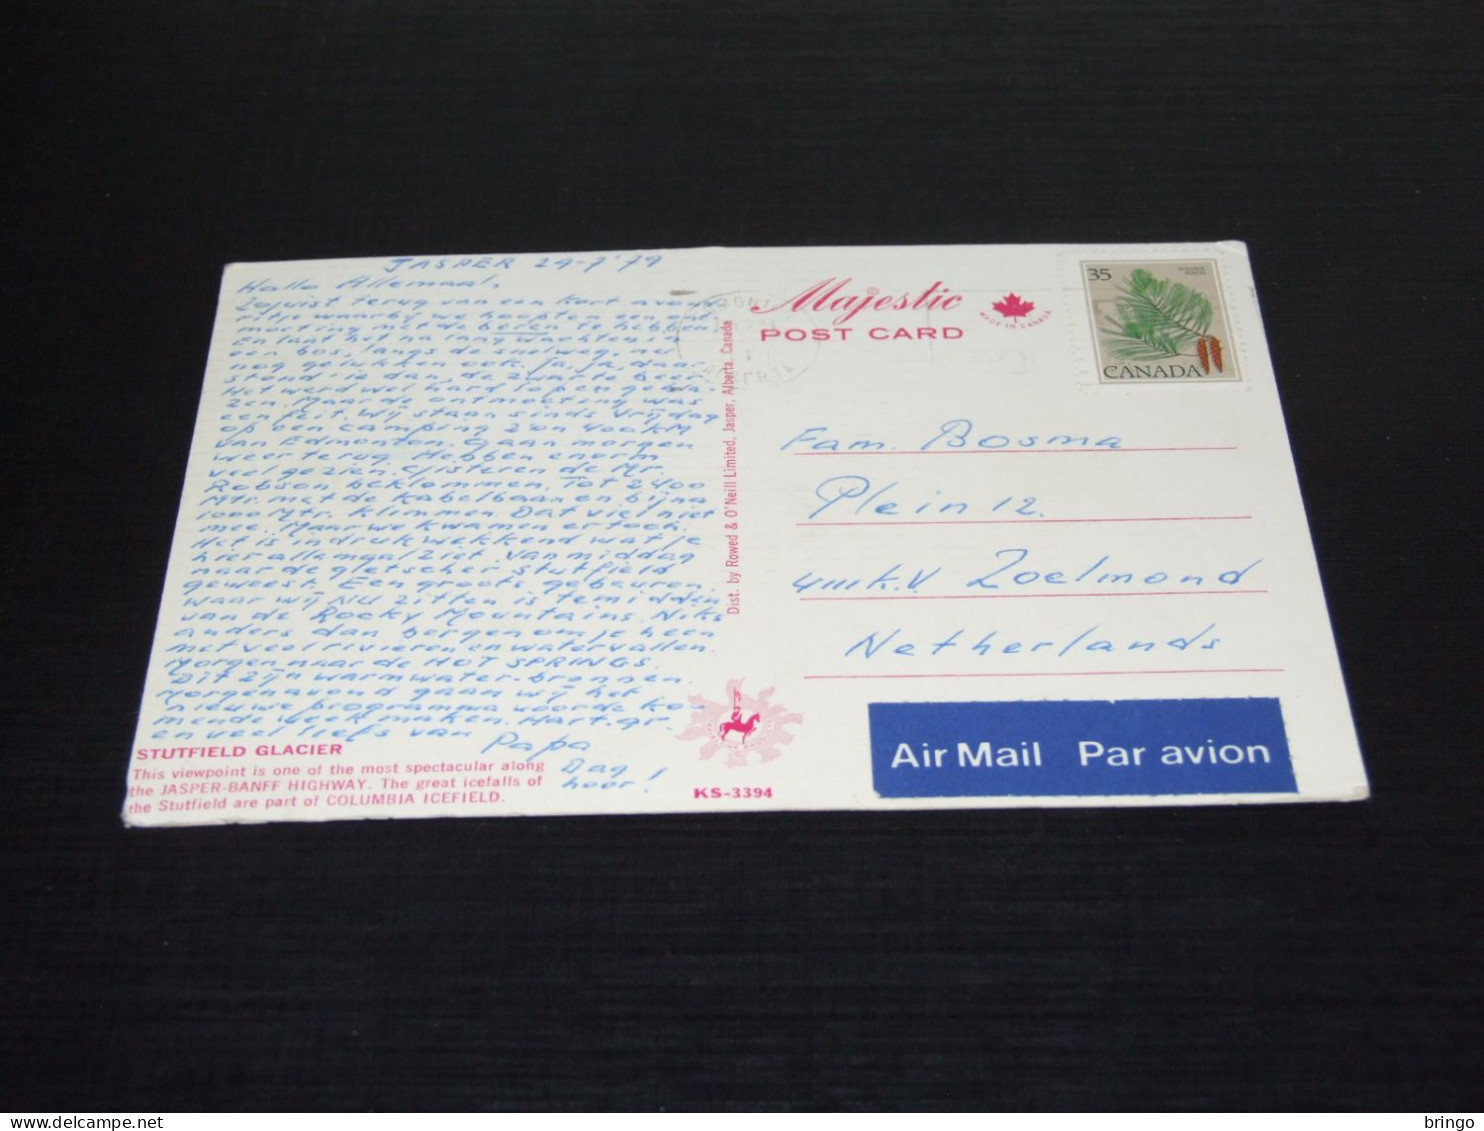 JASPER 29-7'79
Hallo Allemaal,
Zojuist terug van een kort avond
ritje waarbij we hoopten een ont
moeting met de beren te hebben
En laat het na lang wachten in
een bos, langs de snelweg, nu
nog gelukken ook. Ja, Ja, daar
stond ie dan, de zwarte beer.
Het werd wel hard lopen gebla-
zen. Maar de ontmoeting was
een feit. Wij staan sinds vrijdag
op een camping z'on 400 KM
van Edmonton. Gaan morgen
weer terug. Hebben enorm
veel gezien. Gisteren de Mt.
Robson beklommen. Tot 2400
Mtr. met de kabelbaan en bijna
1000 Mtr. klimmen. Dat viel niet
mee. Maar we kwamen er toch.
Het is indrukwekkend wat je
hier allemaal ziet. Van middag
naar de gletscher Stutfield
geweest. Een groots gebeuren
waar wij NU zitten is te midden
van de Rocky Mountains. Niks
anders dan bergen om je heen
met veel rivieren en watervallen.
Morgen naar de HOT SPRINGS.
Dit zijn warmwater-bronnen.
Morgenavond gaan wij het
nieuwe programma voor de ko-
mende week maken. Hart. gr.
en veel liefs van Papa
Dag
hoor!
STUTFIELD GLACIER
This viewpoint is one of the most spectacular along
the JASPER-BANFF HIGHWAY. The great icefalls of
the Stutfield are part of COLUMBIA ICEFIELD.
Dist. by Rowed & O'Neill Limited, Jasper, Alberta, Canada
KS-3394
Majestic
POST CARD
MADE IN CANADA
35
CANADA
Fam. Bosma
Plein 12.
4111 K.V Zoelmond
Netherlands
Air Mail Par avion
bringo